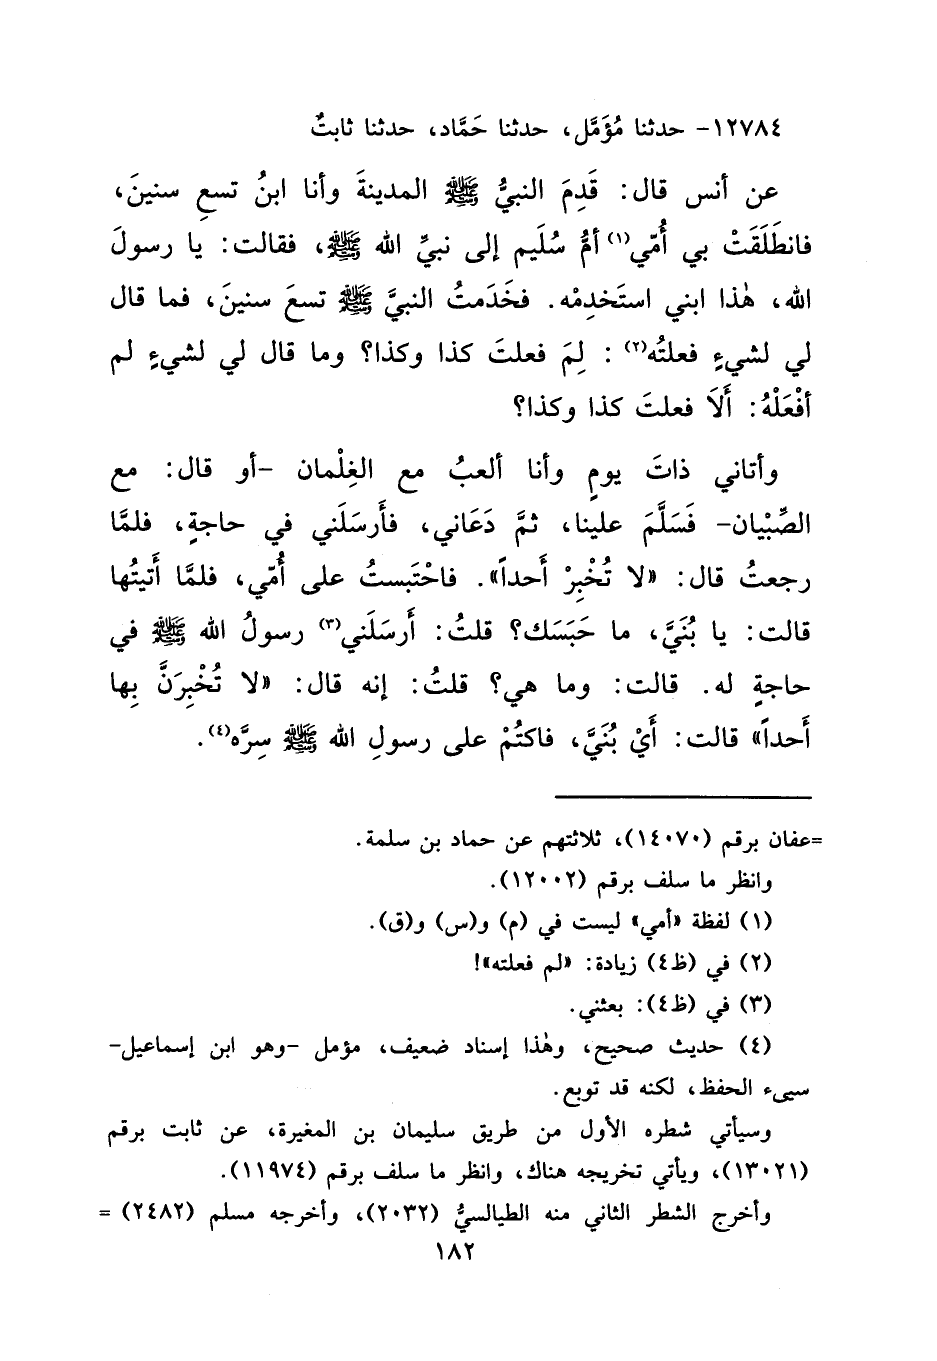 ١٢٧٨٤- حدثنا مُؤَمَّل، حدثنا حَمَّاد، حدثنا ثابتٌ
عن أنس قال: قَدِمَ النبيُّ ﷺ المدينةَ وأنا ابنُ تسعِ سنينَ،
فانطَلَقَتْ بي أُمّي(١) أمُّ سُلَيم إلى نبيِّ الله ﷺ، فقالت: يا رسولَ
الله، هٰذا ابني استَخدِمْه. فخَدَمتُ النبيَّ ﷺ تسعَ سنينَ، فما قال
لي لشيءٍ فعلتُه(٢) : لِمَ فعلتَ كذا وكذا؟ وما قال لي لشيءٍ لم
أفْعَلْهُ: أَلَا فعلتَ كذا وكذا؟
وأتاني ذاتَ يومٍ وأنا ألعبُ مع الغِلْمان -أو قال: مع
الصِّبْيان- فَسَلَّمَ علينا، ثمَّ دَعَاني، فأَرسَلَني في حاجةٍ، فلمَّا
رجعتُ قال: «لا تُخْبِرْ أَحداً». فاحْتَبستُ على أُمّي، فلمَّا أَتيتُها
قالت: يا بُنَيَّ، ما حَبَسَك؟ قلتُ: أَرسَلَني(٣) رسولُ الله ﷺ في
حاجةٍ له. قالت: وما هي؟ قلتُ: إنه قال: «لا تُخْبِرَنَّ بِها
أَحداً» قالت: أَيْ بُنَيَّ، فاكتُمْ على رسولِ الله ﷺ سِرَّه(٤).
=عفان برقم (١٤٠٧٠)، ثلاثتهم عن حماد بن سلمة.
وانظر ما سلف برقم (١٢٠٠٢).
(١) لفظة «أمي» ليست في (م) و(س) و(ق).
(٢) في (ظ٤) زيادة: «لم فعلته»!
(٣) في (ظ٤): بعثني.
(٤) حديث صحيح، وهٰذا إسناد ضعيف، مؤمل -وهو ابن إسماعيل-
سيىء الحفظ، لكنه قد توبع.
وسيأتي شطره الأول من طريق سليمان بن المغيرة، عن ثابت برقم
(١٣٠٢١)، ويأتي تخريجه هناك، وانظر ما سلف برقم (١١٩٧٤).
وأخرج الشطر الثاني منه الطيالسيُّ (٢٠٣٢)، وأخرجه مسلم (٢٤٨٢) =
١٨٢